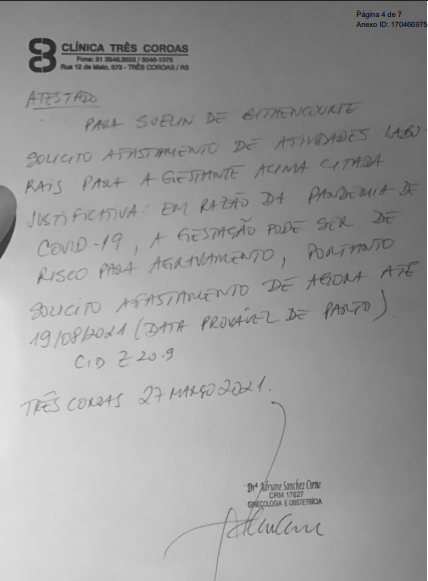 Página 4 de 7
Anexo ID: 170466975
CLÍNICA TRÊS COROAS
Fone: 51 3546.3553 / 3546-1075
Rua 12 de Maio, 573 - TRÊS COROAS / RS
ATESTADO
PARA SUELIN DE BITHENCOURTE
SOLICITO AFASTAMENTO DE ATIVIDADES LABO-
RAIS PARA A GESTANTE ACIMA CITADA
JUSTIFICATIVA: EM RAZÃO DA PANDEMIA DE
COVID-19, A GESTAÇÃO PODE SER DE
RISCO PARA AGRAVAMENTO, PORTANTO
SOLICITO AFASTAMENTO DE AGORA ATÉ
19/08/2021 (DATA PROVÁVEL DE PARTO).
CID Z 20.9
TRÊS COROAS 27 MARÇO 2021.
Drª Adriane Sanchez
CRM 17627
GINECOLOGIA E OBSTETRÍCIA